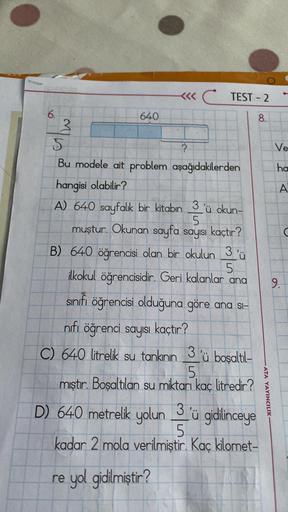 <<< TEST - 2
6.
640
3
5
?
Bu modele ait problem aşağıdakilerden
hangisi olabilir?
A) 640 sayfalık bir kitabın 3/5 'ü okun-
muştur. Okunan sayfa sayısı kaçtır?
B) 640 öğrencisi olan bir okulun 3/5 'ü
ilkokul öğrencisidir. Geri kalanlar ana
sınıfı öğrencisi olduğuna göre ana sı-
nıfı öğrenci sayısı kaçtır?
C) 640 litrelik su tankının 3/5 'ü boşaltıl-
mıştır. Boşaltılan su miktarı kaç litredir?
D) 640 metrelik yolun 3/5 'ü gidilinceye
kadar 2 mola verilmiştir. Kaç kilomet-
re yol gidilmiştir?
8.
Ve
ha
A
C
9.
ATA YAYINCILIK